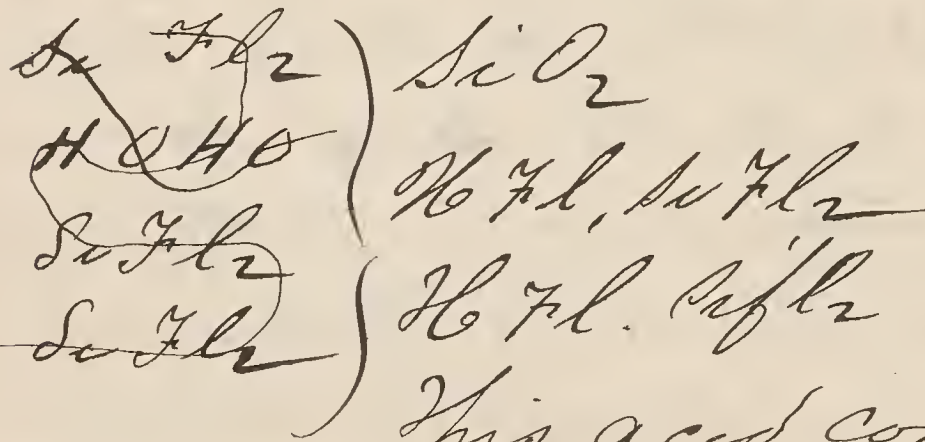 Si Fl2
HOHO
Si Fl2
Si Fl2
SiO2
H Fl, Si Fl2
H Fl. Sifl2
This acid